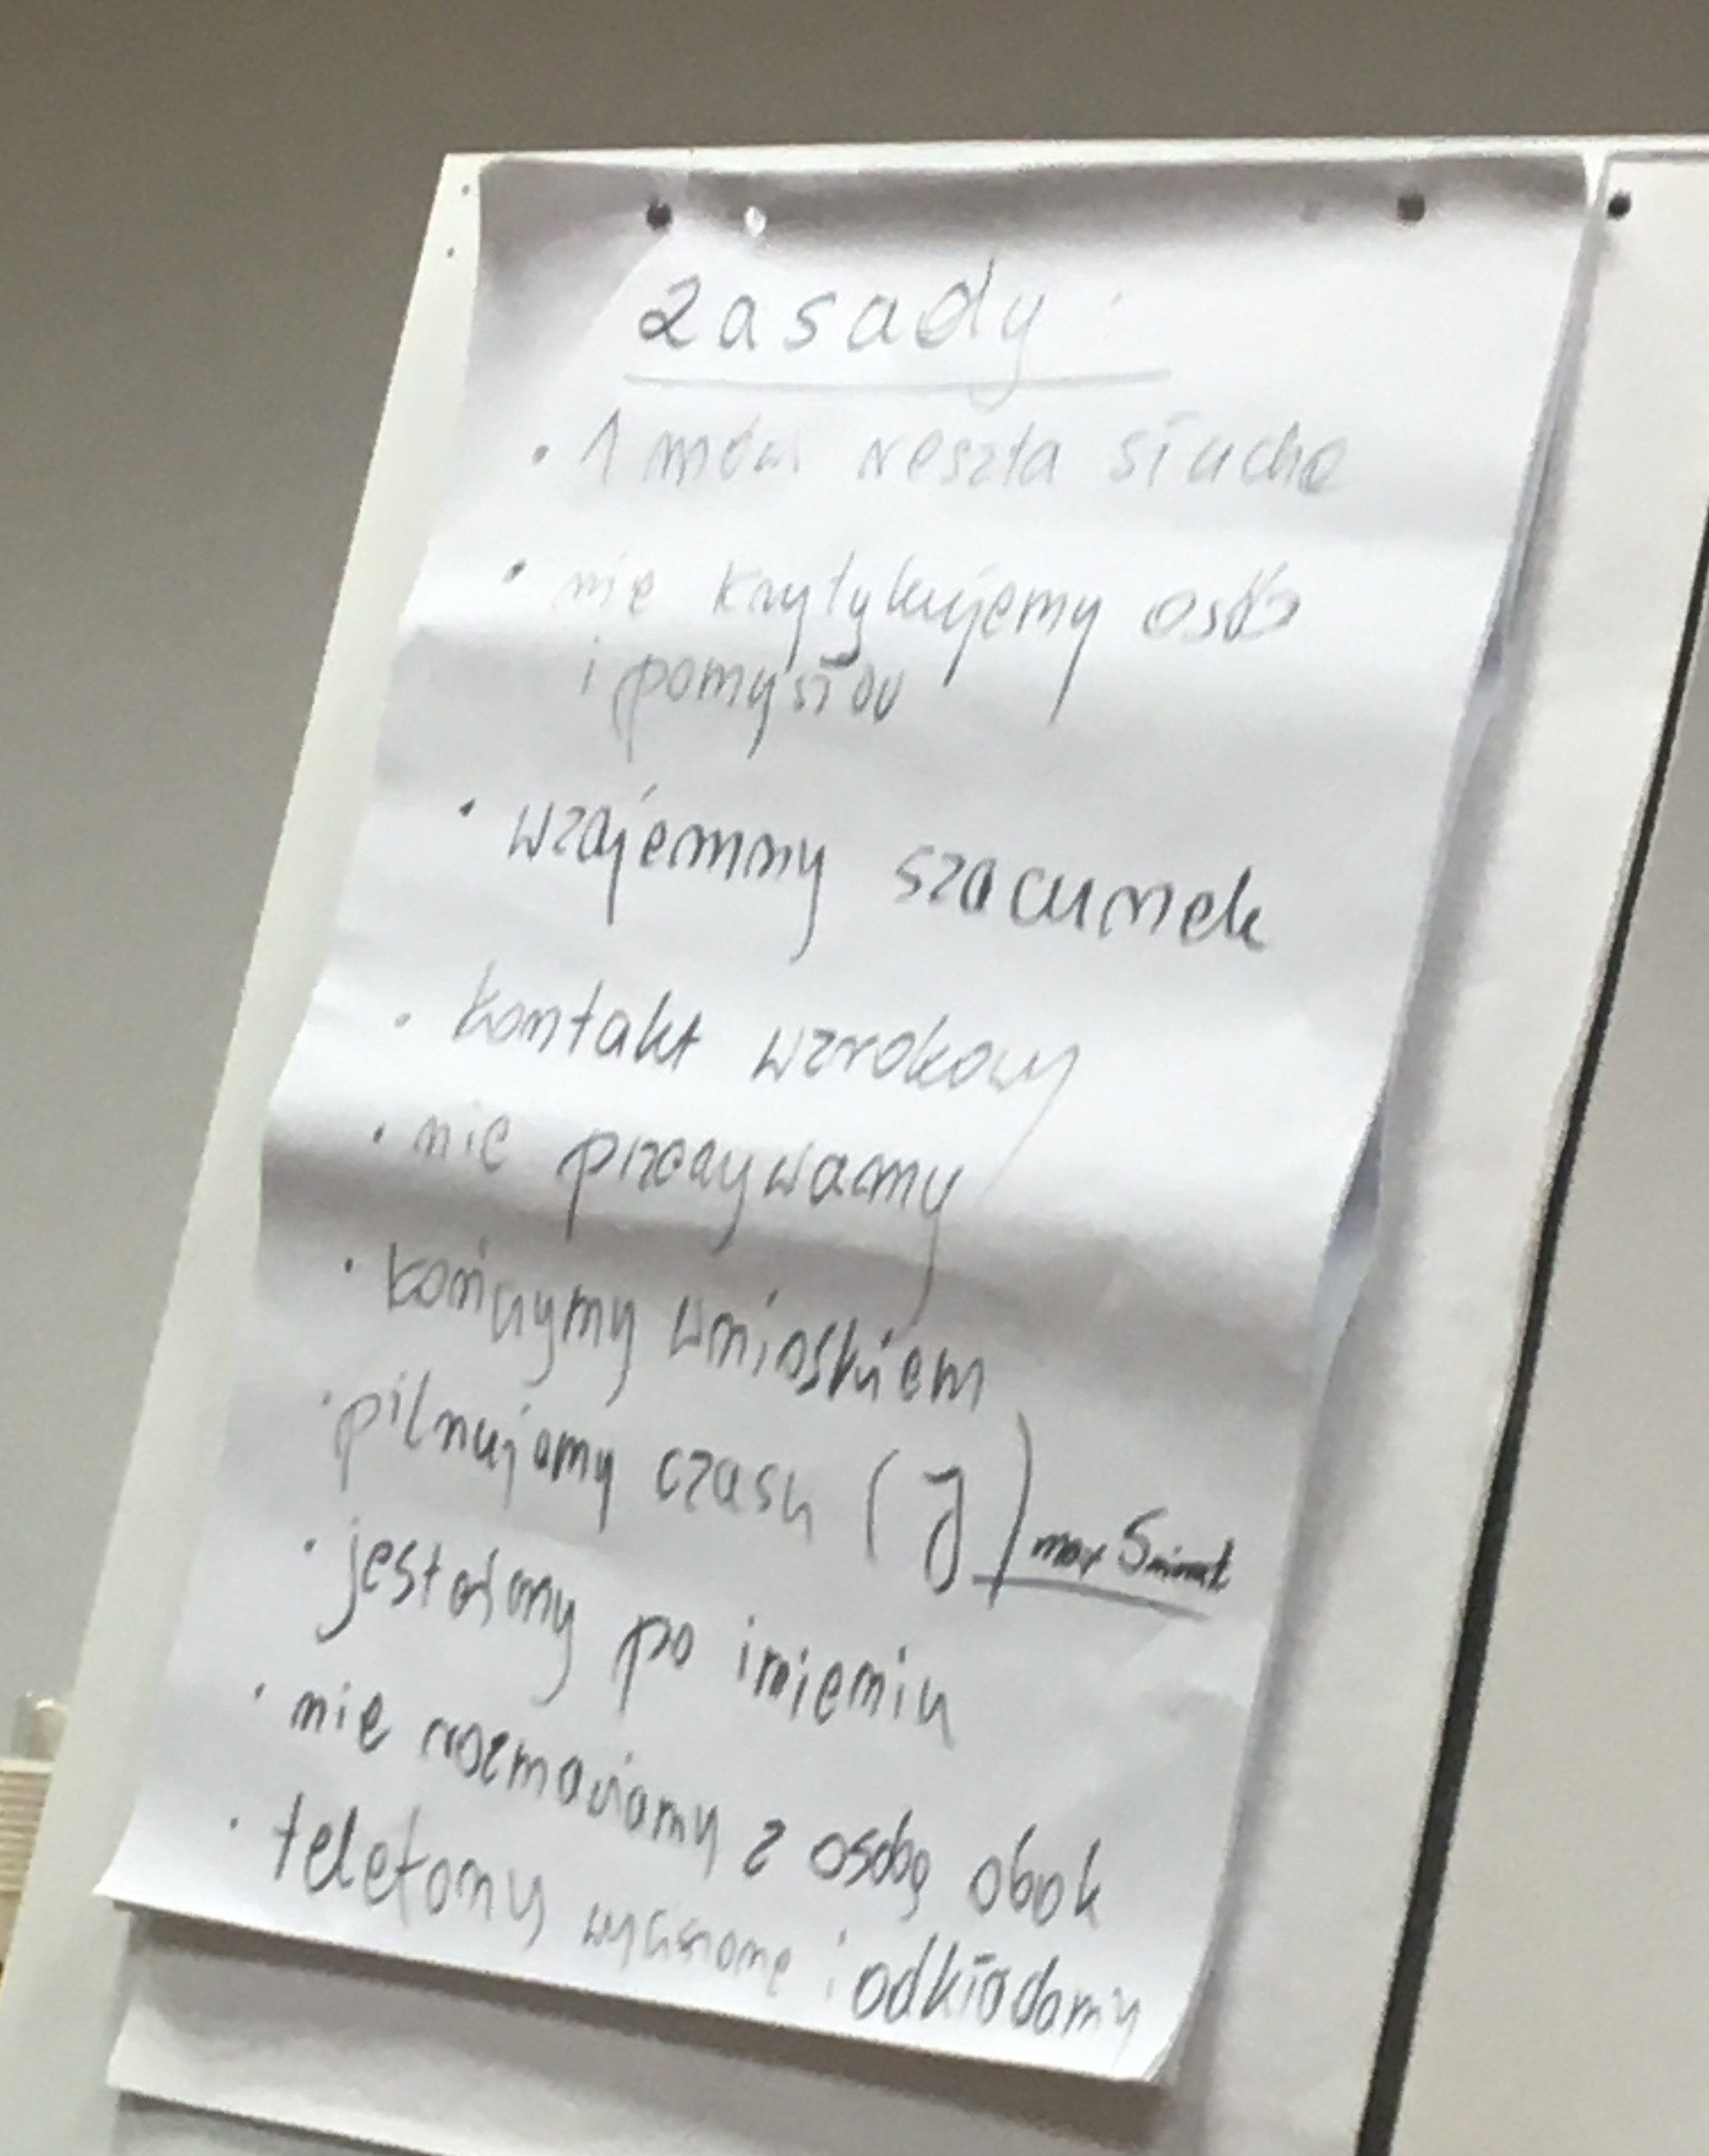 zasady:
• 1 mówi reszta słucha
• nie krytykujemy osób
i pomysłów
• wzajemny szacunek
• kontakt wzrokowy
• nie przerywamy
• kończymy wnioskiem
• pilnujemy czasu (J) max 5 minut
• jesteśmy po imieniu
• nie rozmawiamy z osobą obok
• telefony wyciszone i odkładamy